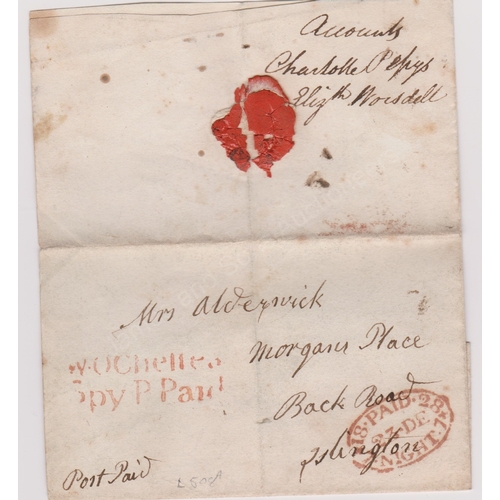 Accounts
Charlotte Pepys
Elizth Worsdell
Mrs Alderwick
Morgans Place
Back Road
Islington
W.O Chelsea
py P Paid
18·PAID·28
23·DE
NIGHT·7
Post Paid